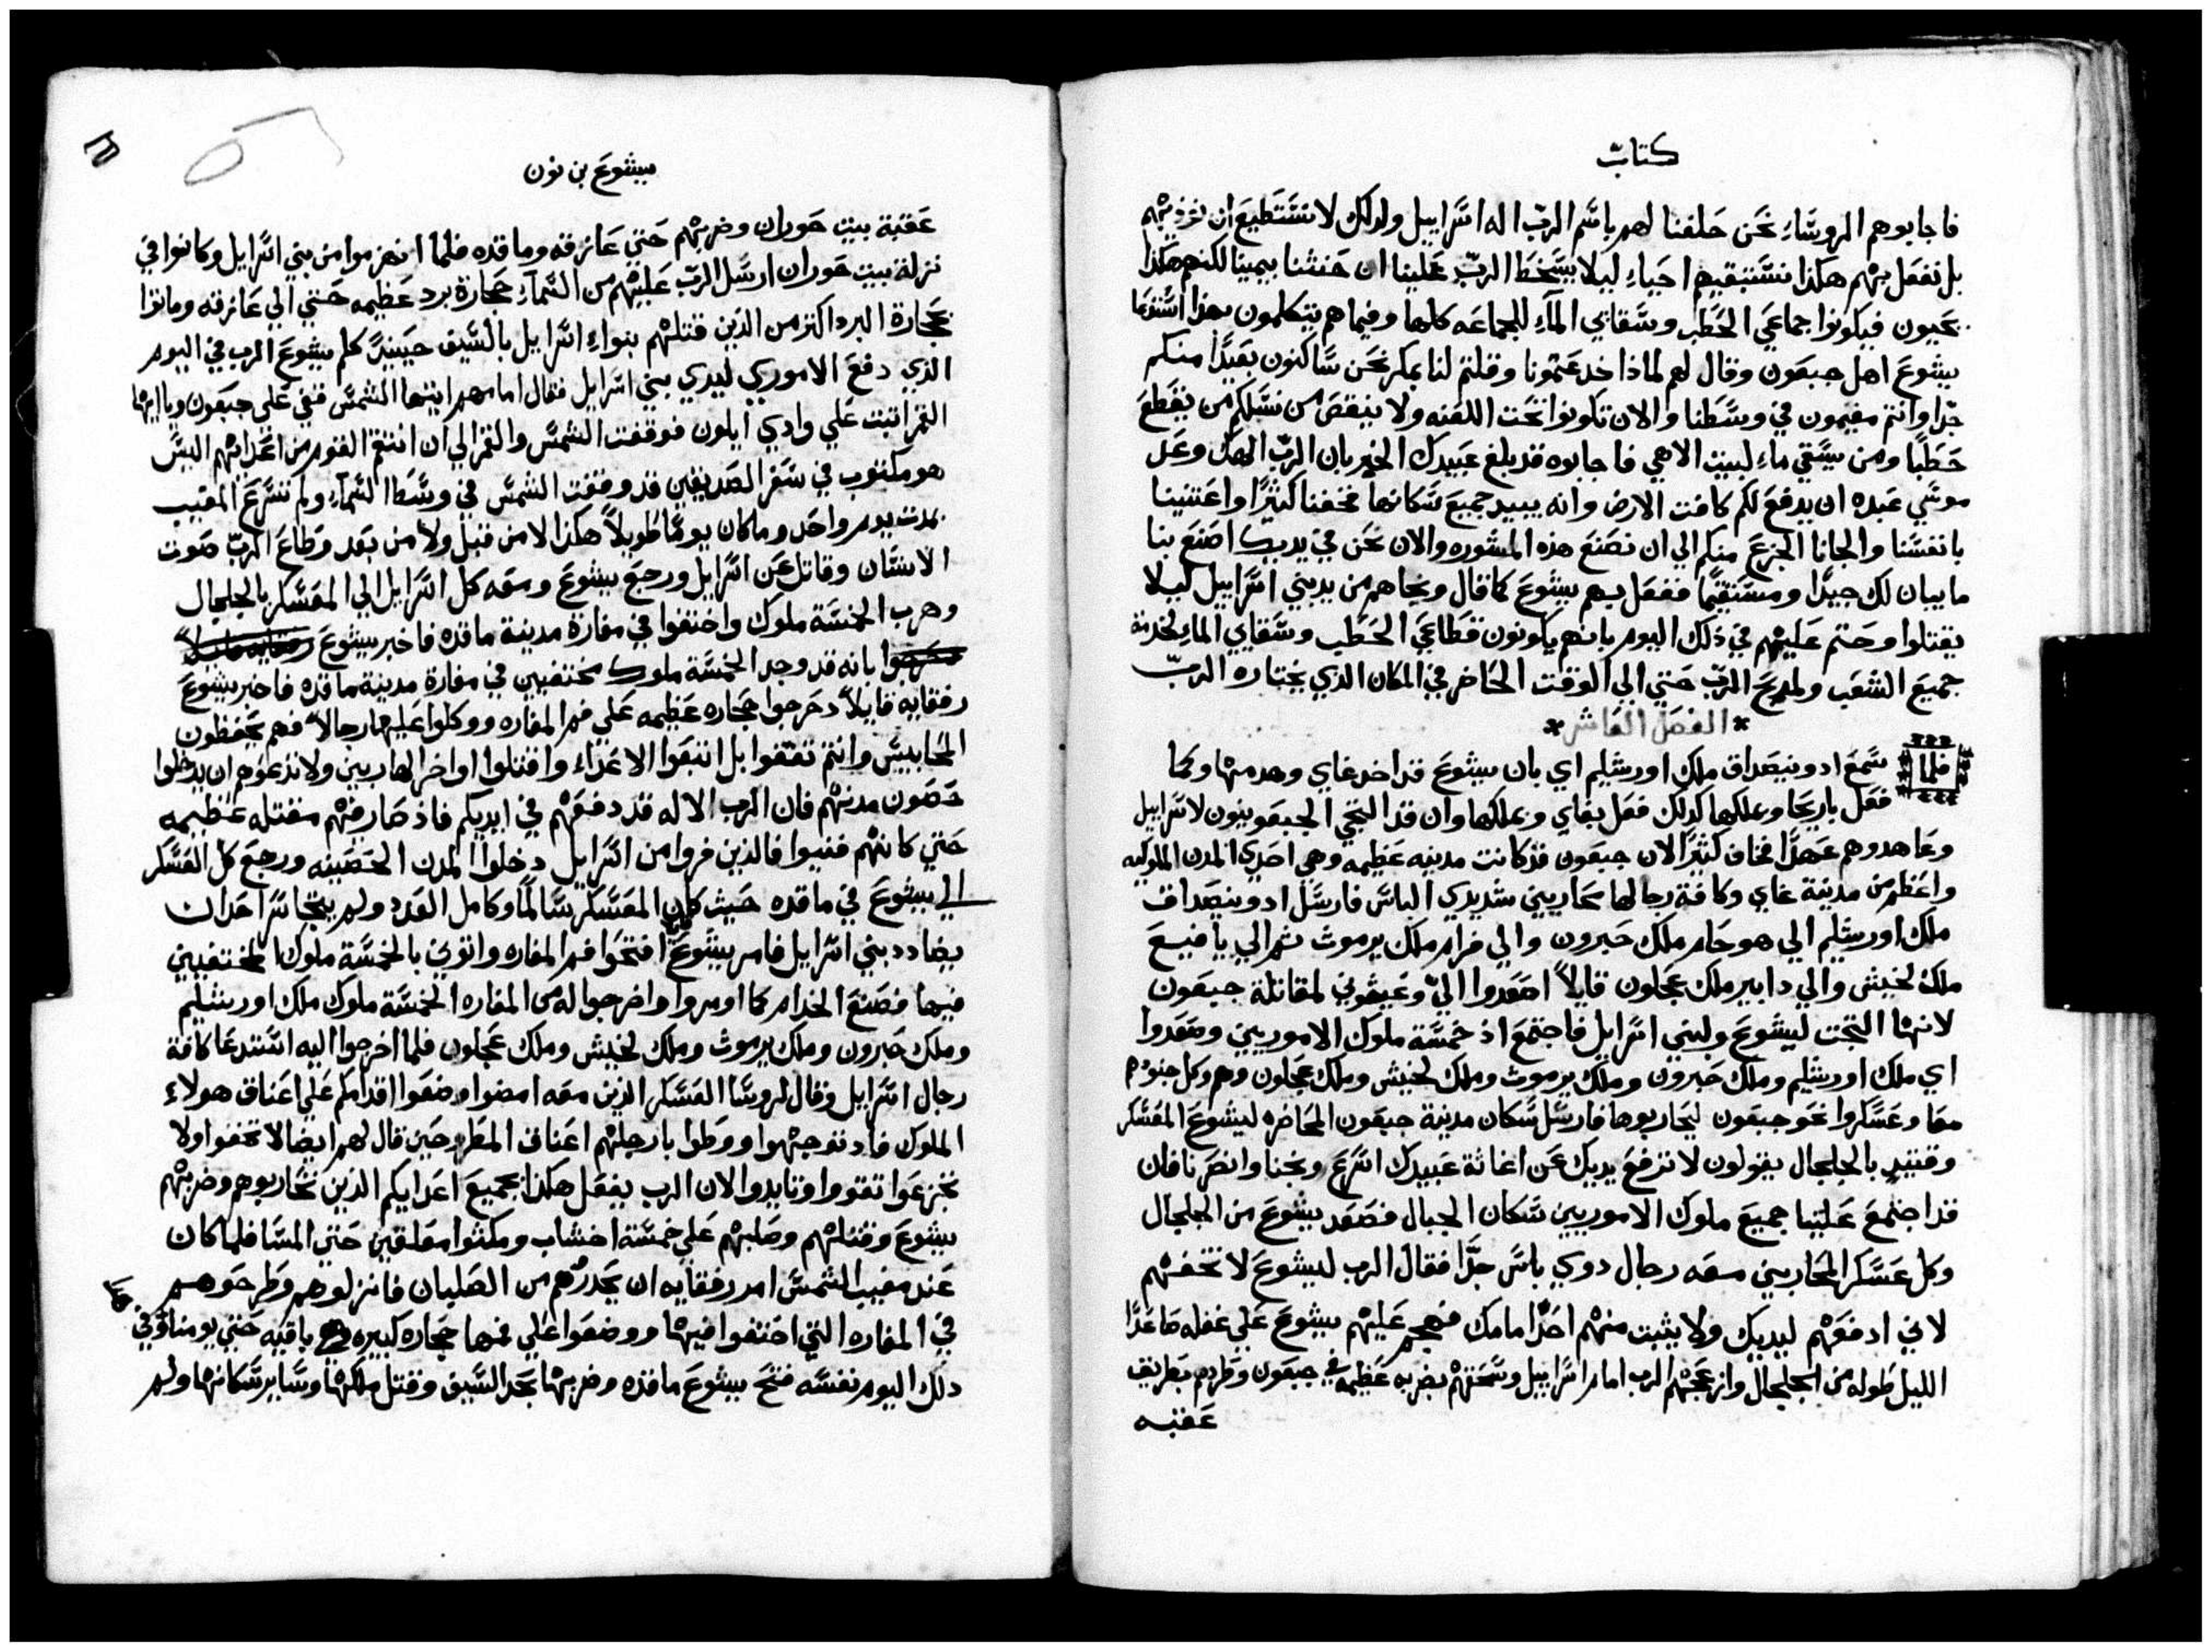 كتاب
فاجابوهم الروسَاءِ نحَن حَلفنا لهم باسَم الربّ اله اسَراييل ولدلك لا نسَتَطيعَ ان نوذيهم
بل نفعَل بهم هكذا نسَتبقيهم احيَاءِ ليلا يسَخط الربّ عَلينا ان حَنثنا بيمينا لكنهم هكذا
يحَيون فيكونوا جماعَي الحَطب وسَقايي المآءِ للجماعَه كلها وفيما هم يتكلمون بهذا اسَتدعَا
يشوعَ اهل جبعَون وقال لهم لماذا خدعَتمونا وقلتم لنا بمكر نحَن سَاكنون بعَيدًا منكم
جدًا وانتم مقيمون في وسَطنا والان تكونوا تحَت اللعَنه ولا ينقصَ من نسَلكم من يقطعَ
حَطبًا ومن يسَقي ماءِ لبيت الاهي فاجابوه قد بلغ عَبيدك الخبر بان الربّ الهك وعَد
موسَي عَبده ان يدفعَ لكم كافت الارض وانه يبيد جميعَ سَكانها فخفنا كثيرًا واعَتنينا
بانفسَنا والجانا الجزعَ منكم الي ان نصَنعَ هذه المشوره والان نحَن في يديك اصَنعَ بنا
ما يبان لك جيدًا ومسَتقيمًا ففعَل بهم يشوعَ كما قال ونجاهم من يد بني اسَراييل ليلا
يقتلوا وحَتم عَليهم في ذلك اليوم بانهم يكونون قطاعَي الحَطب وسَقايي الماءِ لخدمة
جميعَ الشعَب ولمدبحَ الربّ حَتي الي الوقت الحَاضر في المكان الذي يختاره الربّ
* الفصَل العَاشر *
فلما سَمعَ ادونيصَداق ملك اورشليم اي بان يشوعَ قد اخد غاي وهدمها وكما
فعَل باريحَا وملكها كدلك فعَل بغاي وملكها وان قد التجي الجبعَونيون لاسَراييل
وعَاهدوهم عَهدًا فخاف كثيرًا لان جبعَون قد كانت مدينه عَظيمه وهي احَدي المدن الملوكيه
واعَظم من مدينة غاي وكافة رجالها محَاربين شديدي الباسَ فارسَل ادونيصَداق
ملك اورشليم الي هوحَام ملك حَبرون والي فرام ملك يرموث ثم الي يافيعَ
ملك لخيش والي دابير ملك عَجلون قايلاً اصَعَدوا اليّ وعَيشوني لمقاتلة جبعَون
لانها التجت ليشوعَ ولبني اسَرايل فاجتمعَ اذ خمسَة ملوك الاموريين وصَعَدوا
اي ملك اورشليم وملك حَبرون وملك يرموث وملك لخيش وملك عَجلون وهم وكل جنودهم
معَا وعَسَكروا نحَو جبعَون ليحَاربوها فارسَل سَكان مدينة جبعَون المحَاضره ليشوعَ المعَسَكر
وقتيدٍ بالجلجال يقولون لا ترفعَ يديك عَن اغاثة عَبيدك اسَرعَ ونجنا وانصَرنا فان
قد اجتمعَ عَلينا جميعَ ملوك الاموريين سَكان الجبال فصَعَد يشوعَ من الجلجال
وكل عَسَكر المحَاربين معَه رجال دوي باسَ جدًا فقال الرب ليشوعَ لا تخفهم
لاني ادفعَهم ليديك ولا يثبت منهم احَدًا امامك فهجم عَليهم يشوعَ علي غفله صَاعَدًا
الليل طَوله من الجلجال وازعَجهم الرب امام اسَراييل وسَحَقهم بضربه عَظيمه في جبعَون وطردهم بطريق
عَقبه
يشوعَ بن نون
عَقبَة بيت حَوران وضربهم حَتي عَازقه وماقده فلما انهزموا من بني اسَرايل وكانوا في
نزلة بيت حَوران ارسَل الربّ عَليهم من السَمآءِ حَجارة برد عَظيمه حَتي الي عَازقه وماتوا
بحَجارة البرد اكتر من الذين قتلهم بنواءِ اسَرايل بالسَيف حَينيدً كلم يشوعَ الرب في اليوم
الذي دفعَ الاموري ليدي بني اسَرايل فقال امامهم ايتها الشمسَ قفي عَلي جبعَون ويا ايها
القمر اثبت عَلي وادي ايلون فوقفت الشمسَ والقمر الي ان انتقم القوم من اعَدايهم اليسَ
هو مكتوب في سَفر الصَديقين قد وقفت الشمسَ في وسَط السَمآءِ ولم تسَرعَ المغيب
بمدت يوم واحَد وما كان يومًا طَويلاً هكذا لا من قبل ولا من بعَد وطَاعَ الربّ صَوت
الانسَان وقاتل عَن اسَرايل ورجعَ يشوعَ ومعَه كل اسَرايل الي المعَسَكر بالجلجال
وهرب الخمسَة ملوك واختفوا في مغارة مدينة ماقده فاخبر يشوعَ
بانه قد وجد الخمسَة ملوك مختفيين في مغارة مدينة ماقده فاخبر يشوعَ
رفقايه قايلاً دحَرجوا حَجاره عَظيمه عَلي فم المغاره ووكلوا عَليها رجالاً فهم يحَفظون
المحَابيسَ وانتم تقفوا بل اتبعَوا الاعَداء واقتلوا اواخر الهاربين ولا تدعَوهم ان يدخلوا
حَصَون مدنهم فان الرب الاله قد دفعَهم في ايديكم فاذ صَار فيهم مقتله عَظيمه
حَتي كانهم فنيوا فالذين فروا من اسَرايل دخلوا المدن الحَصَينه ورجعَ كل العَسَكر
الي يشوعَ في ماقده حَيث كان المعَسَكر سَالمًا وكامل العَدد ولم يتجاسَر احَد ان
يضادد بني اسَرايل فامر يشوعَ افتحَوا فم المغاره واتوني بالخمسَة ملوك المختفيين
فيها فصَنعَ الخدام كما اومروا واخرجوا له من المغاره الخمسَة ملوك ملك اورشليم
وملك حَبرون وملك يرموث وملك لخيش وملك عَجلون فلما اخرجوا اليه اسَتدعَا كافة
رجال اسَرايل وقال لروسَا العَسَكر الذين معَه امضوا وضعَوا اقدامكم عَلي اعَناق هولاءِ
الملوك فاد توجهوا ووطَوا بارجلهم اعَناق المطروحَين قال لهم ايضا لا تخفوا ولا
تجزعَوا تقووا وتايدوا لان الرب يفعَل هكذا بجميعَ اعَدايكم الذين تحَاربوهم وضربهم
يشوعَ وقتلهم وصَلبهم عَلي خمسَة اخشاب ومكثوا معَلقين حَتي المسَا فلما كان
عَند مغيب الشمسَ امر رفقايه ان يحَدروهم من الصَلبان فانزلوهم وطرحَوهم
في المغاره التي اختفوا فيها ووضعَوا عَلي فمها حَجاره كبيره باقيه حَتي يومنا وفي
دلك اليوم نفسَه فتحَ يشوعَ ماقده وضربها بحَد السَيف وقتل ملكها وسَاير سَكانها ولم